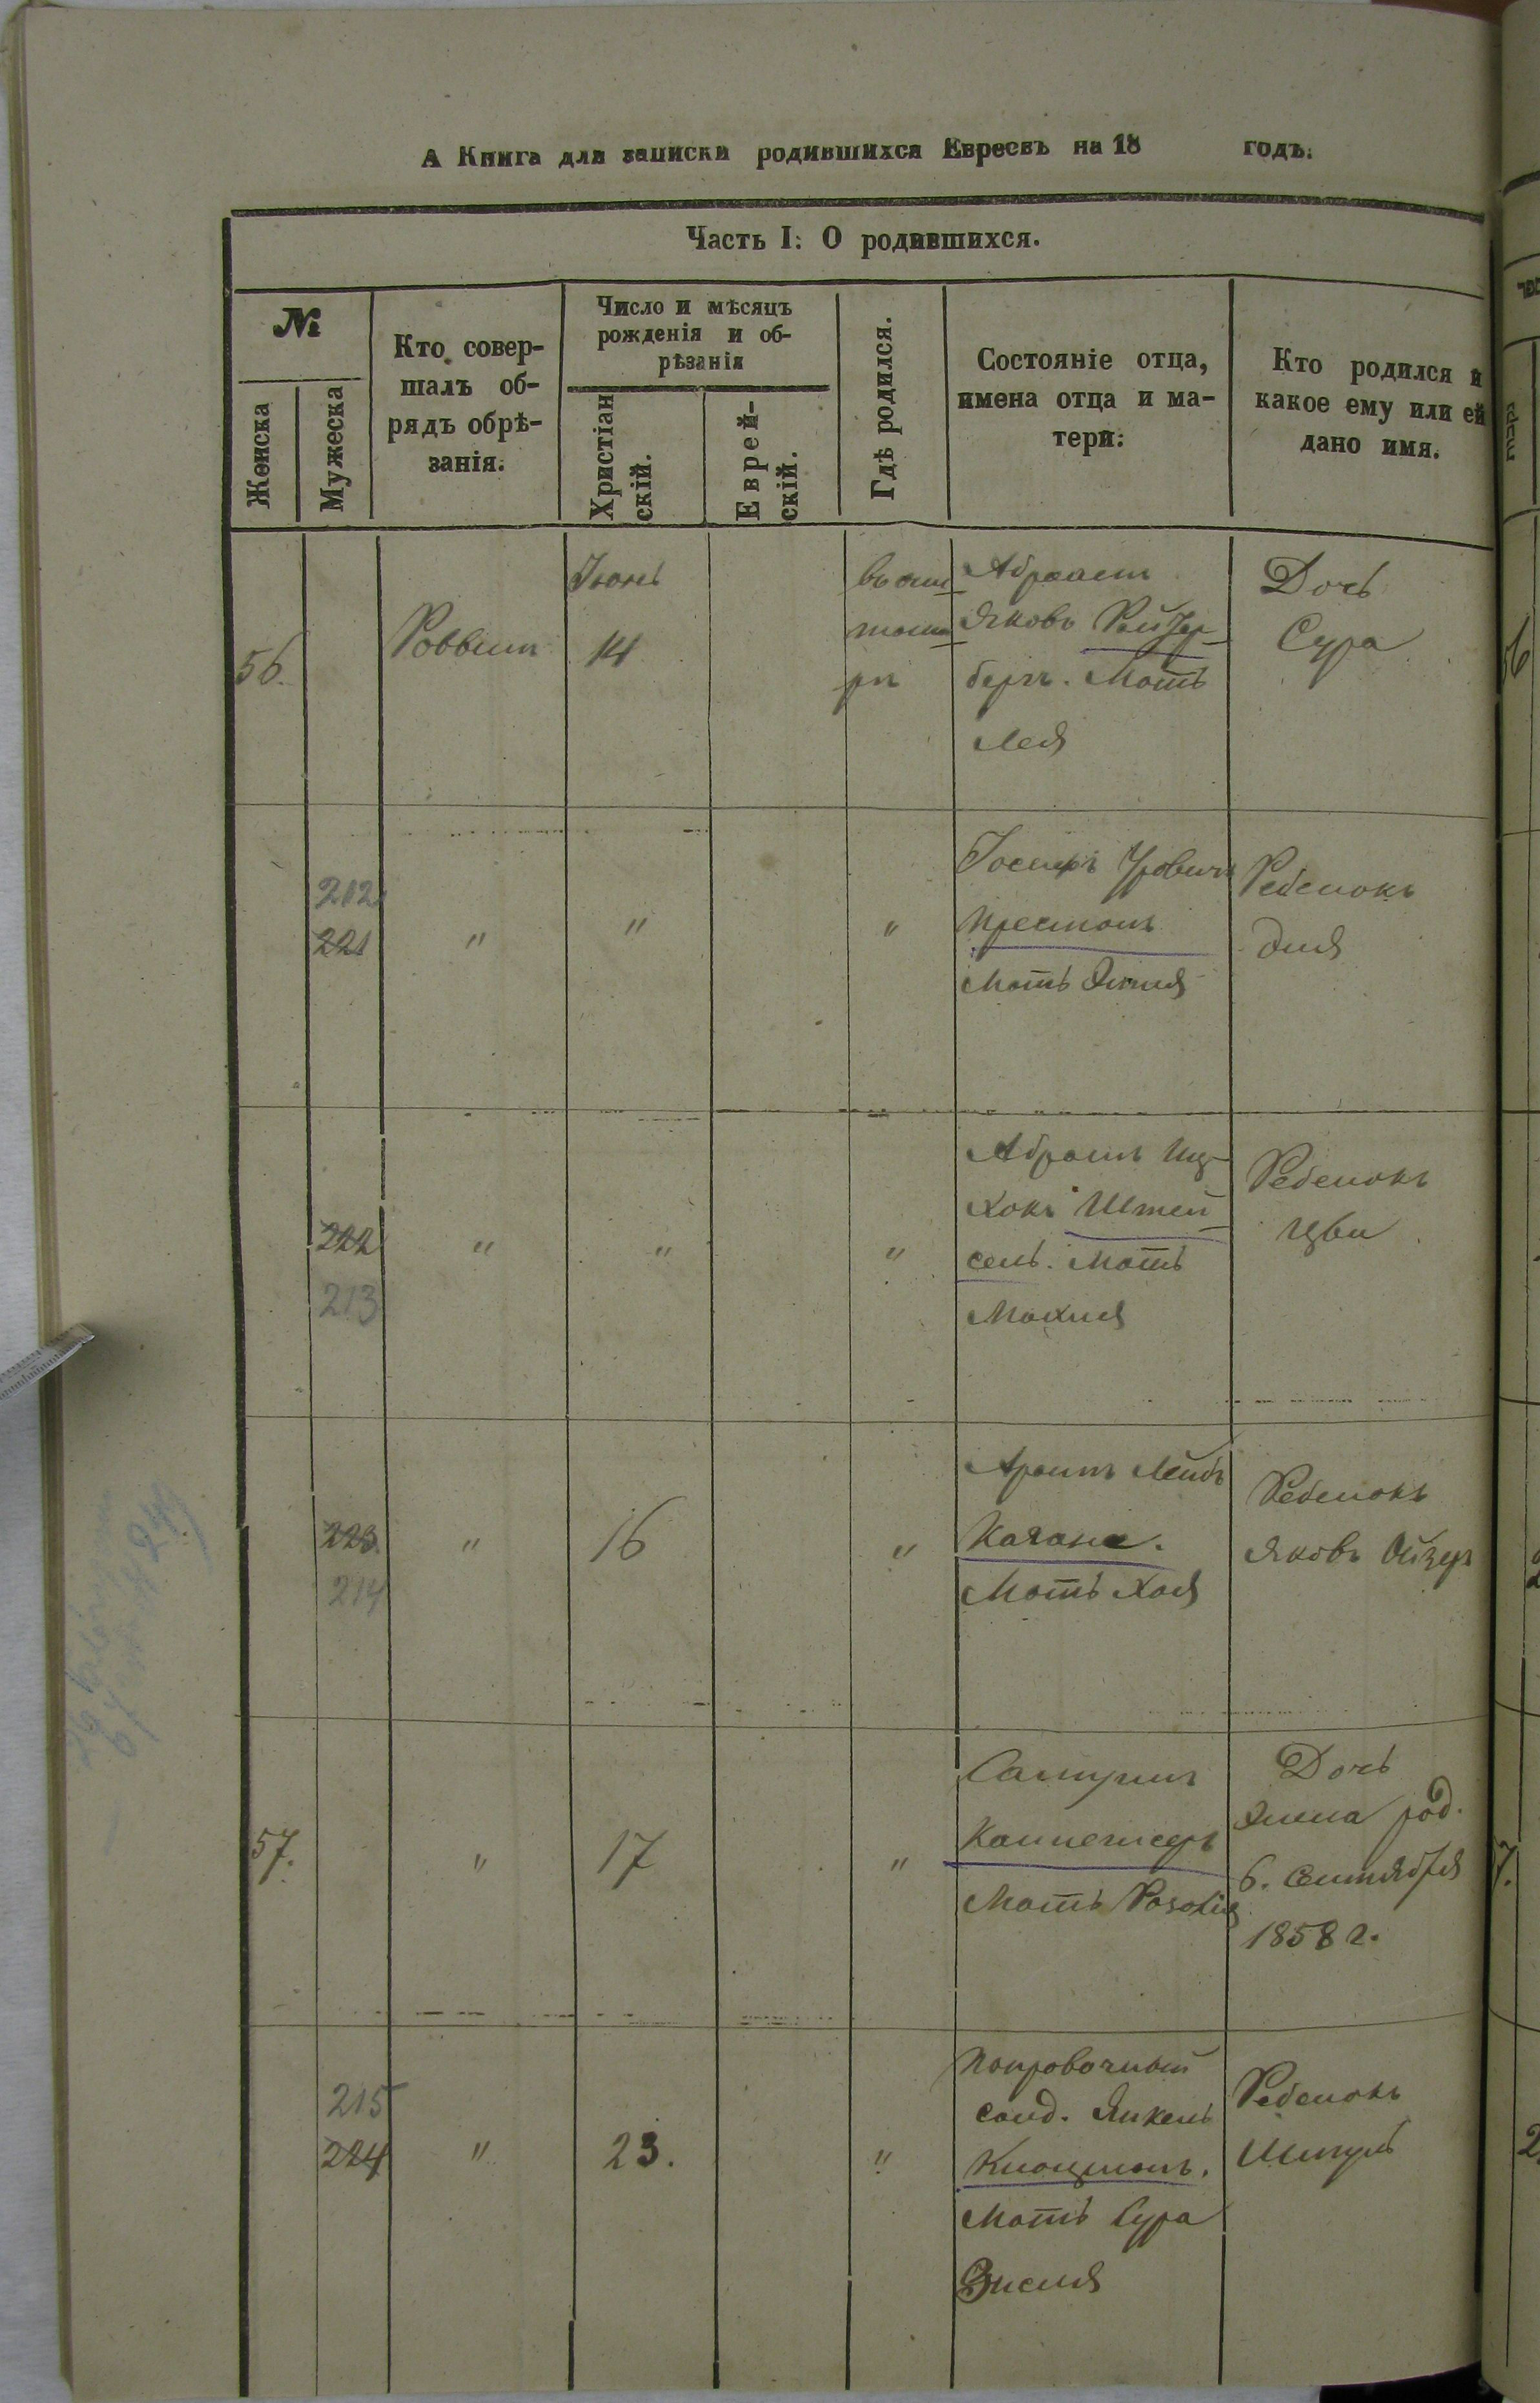 А Книга для записки родившихся Евреевъ на 18 годъ.
Часть I: О родившихся.
№
Женска
Мужеска
Кто совер-
шалъ об-
рядъ обрѣ-
занія.
Число и мѣсяцъ
рожденія и об-
рѣзанія
Христіан
скій.
Еврей-
скій.
Гдѣ родился.
Состояніе отца,
имена отца и ма-
тери:
Кто родился и
какое ему или ей
дано имя.
56.
Раввинъ
Іюнь
14
Абрамъ
Яковъ Рейзер-
бергъ. Мать
Лея
Дочь
Сура
212
221
"
"
"
Іосифъ
Мать
Ребенокъ
222
213
"
"
"
Абрамъ Иц-
хокъ Штей-
сель. Мать
Малия
Ребенокъ
Цви
223
214
"
16
"
Аронъ Лейбъ
Кагане.
Мать Хая
Ребенокъ
Яковъ Ойзеръ
57.
"
17
"
Самуилъ
Мать Розалія
Дочь
Эмма род.
6. Сентября
1858 г.
215
224
"
23.
"
солд. Янкель
Мать Сура
Зисля
Ребенокъ
Шмуль